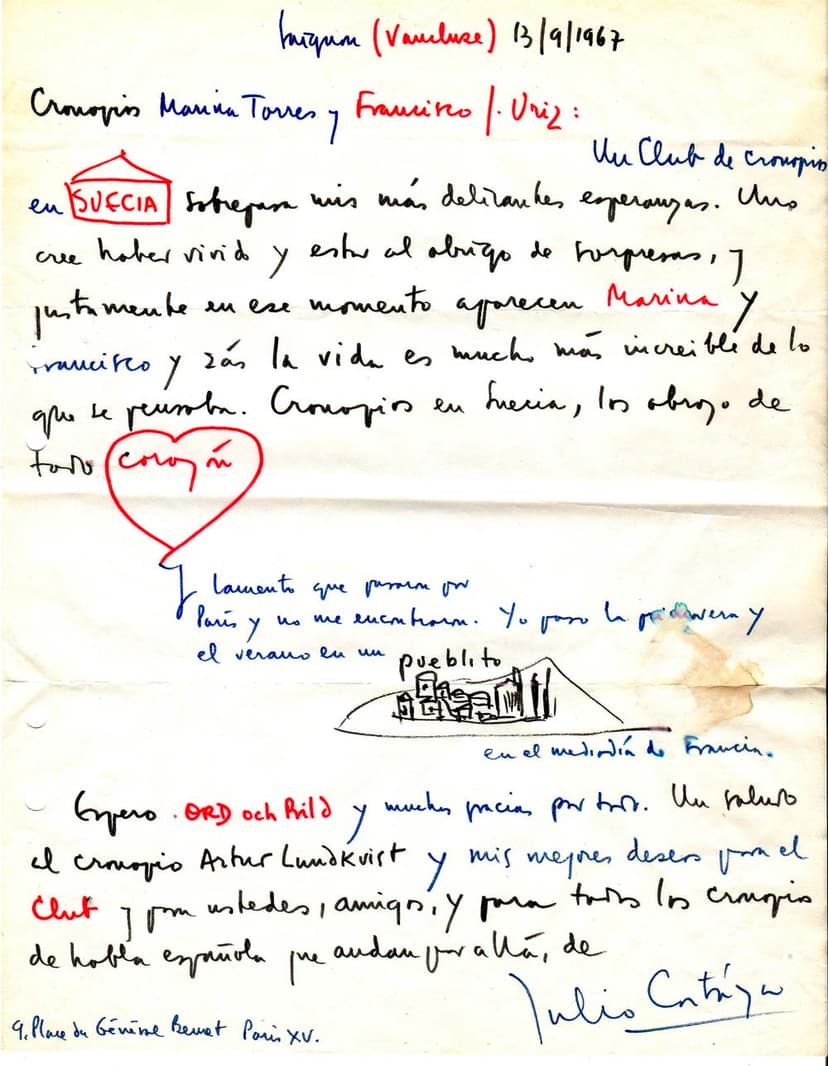 Saignon (Vaucluse) 13/9/1967
Cronopios Marina Torres y Francisco J. Uriz:
Un Club de cronopios
en SUECIA sobrepasa mis más delirantes esperanzas. Uno
cree haber vivido y estar al abrigo de sorpresas, y
justamente en ese momento aparecen Marina y
Francisco y zás la vida es mucho más increible de lo
que se pensaba. Cronopios en Suecia, los abrazo de
todo corazón
Y lamento que pasaran por
París y no me encontraran. Yo paso la primavera y
el verano en un pueblito
en el mediodía de Francia.
Espero ORD och Bild y muchas gracias por todo. Un saludo
al cronopio Artur Lundkvist y mis mejores deseos para el
Club y para ustedes, amigos, y para todos los cronopios
de habla española que andan por allá, de
Julio Cortázar
9, Place du Général Beuret Paris XV.